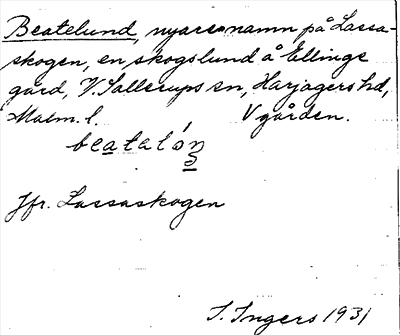 Beatelund, nyare namn på Lassa-
skogen, en skogslund å Ellinge
gård, V. Sallerups sn, Harjagers hd,
Malm. l. V gården.
beatalón
Jfr. Lassaskogen
I. Ingers 1931